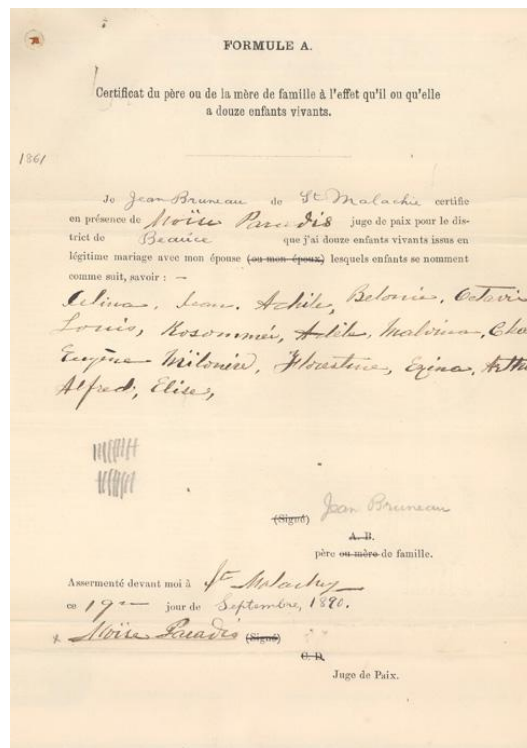 FORMULE A.
Certificat du père ou de la mère de famille à l'effet qu'il ou qu'elle
a douze enfants vivants.
1861
Je Jean Bruneau de St Malachie certifie
en présence de Moïse Paradis juge de paix pour le dis-
trict de Beauce que j'ai douze enfants vivants issus en
légitime mariage avec mon épouse (ou mon époux) lesquels enfants se nomment
comme suit, savoir : —
Celina, Jean, Achile, Belonie, Octavi
Louis, Rosommée, Adèle, Malvina, Cha
Eugène Milonise, Florestine, Exina, Arth
Alfred, Elise,
(Signé) Jean Bruneau
A. B.
père ou mère de famille.
Assermenté devant moi à St Malachy
ce 19me jour de Septembre, 1890.
Moïse Paradis (Signé)
C. D.
Juge de Paix.